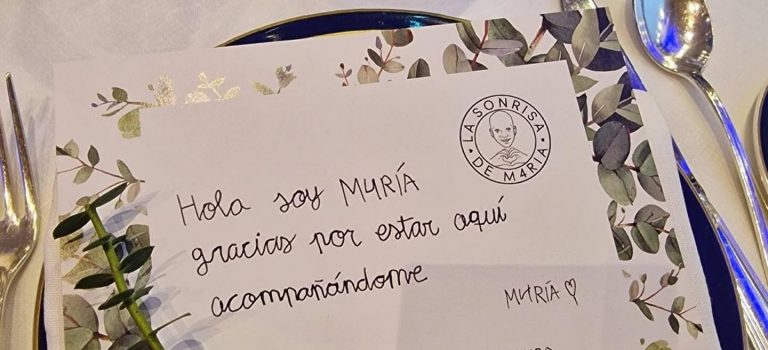 LA SONRISA
DE M4RIA
Hola soy M4RÍA
gracias por estar aquí
acompañándome
M4RÍA